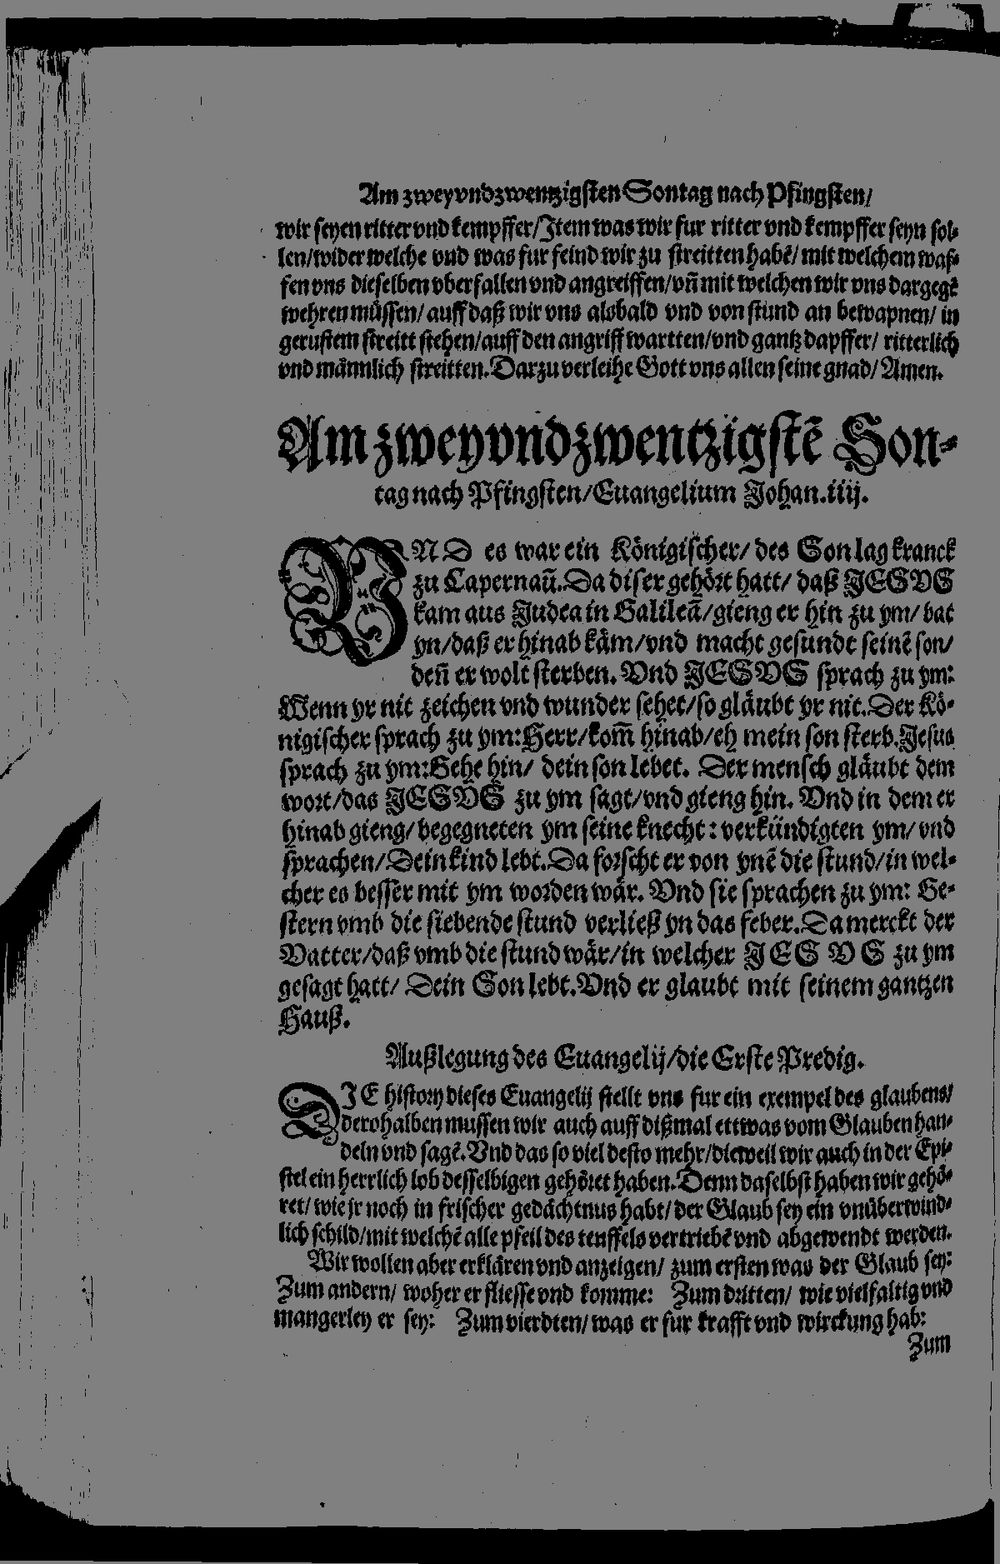 Am zweyvndzwentzigsten Sontag nach Pfingsten/
wir seyen ritter vnd kempffer/Item was wir fur ritter vnd kempffer seyn sol-
len/wider welche vnd was fur feind wir zu streitten habē/mit welchem waf-
fen vns dieselben vberfallen vnd angreiffen/vñ mit welchen wir vns dargegē
wehren müssen/auff daß wir vns alsbald vnd von stund an bewapnen/in
gerustem streitt stehen/auff den angriff wartten/vnd gantz dapffer/ ritterlich
vnd männlich streitten. Darzu verleihe Gott vns allen seine gnad/Amen.
Am zweyvndzwentzigstē Son-
tag nach Pfingsten/Euangelium Johan.iiij.
VND es war ein Königischer/des Son lag kranck
zu Capernaū. Da diser gehört hatt/daß JESVS
kam aus Judea in Galileā/gieng er hin zu ym/bat
yn/daß er hinab käm/vnd macht gesundt seinē son/
deñ er wolt sterben. Vnd JESVS sprach zu ym:
Wenn yr nit zeichen vnd wunder sehet/so gläubt yr nit. Der Kö-
nigischer sprach zu ym: Herr/kom̄ hinab/eh mein son sterb. Jesus
sprach zu ym: Gehe hin/ dein son lebet. Der mensch gläubt dem
wort/das JESVS zu ym sagt/vnd gieng hin. Vnd in dem er
hinab gieng/begegneten ym seine knecht: verkündigten ym/vnd
sprachen/Dein kind lebt. Da forscht er von ynē die stund/in wel-
cher es besser mit ym worden wär. Vnd sie sprachen zu ym: Ge-
stern vmb die siebende stund verließ yn das feber. Da merckt der
Vatter/daß vmb die stund wär/in welcher JESVS zu ym
gesagt hatt/ Dein Son lebt. Vnd er glaubt mit seinem gantzen
Hauß.
Außlegung des Euangelij/die Erste Predig.
DIE history dieses Euangelij stellt vns fur ein exempel des glaubens/
derohalben mussen wir auch auff dißmal ettwas vom Glauben han-
deln vnd sagē. Vnd das so viel desto mehr/dieweil wir auch in der Epi-
stel ein herrlich lob desselbigen gehöret haben. Denn daselbst haben wir gehö-
ret/wie jr noch in frischer gedächtnus habt/der Glaub sey ein vnüberwind-
lich schild/mit welchē alle pfeil des teuffels vertriebē vnd abgewendt werden.
Wir wollen aber erklären vnd anzeigen/ zum ersten was der Glaub sey:
Zum andern/ woher er fliesse vnd komme: Zum dritten/ wie vielfaltig vnd
mangerley er sey: Zum vierdten/was er fur krafft vnd wirckung hab:
Zum